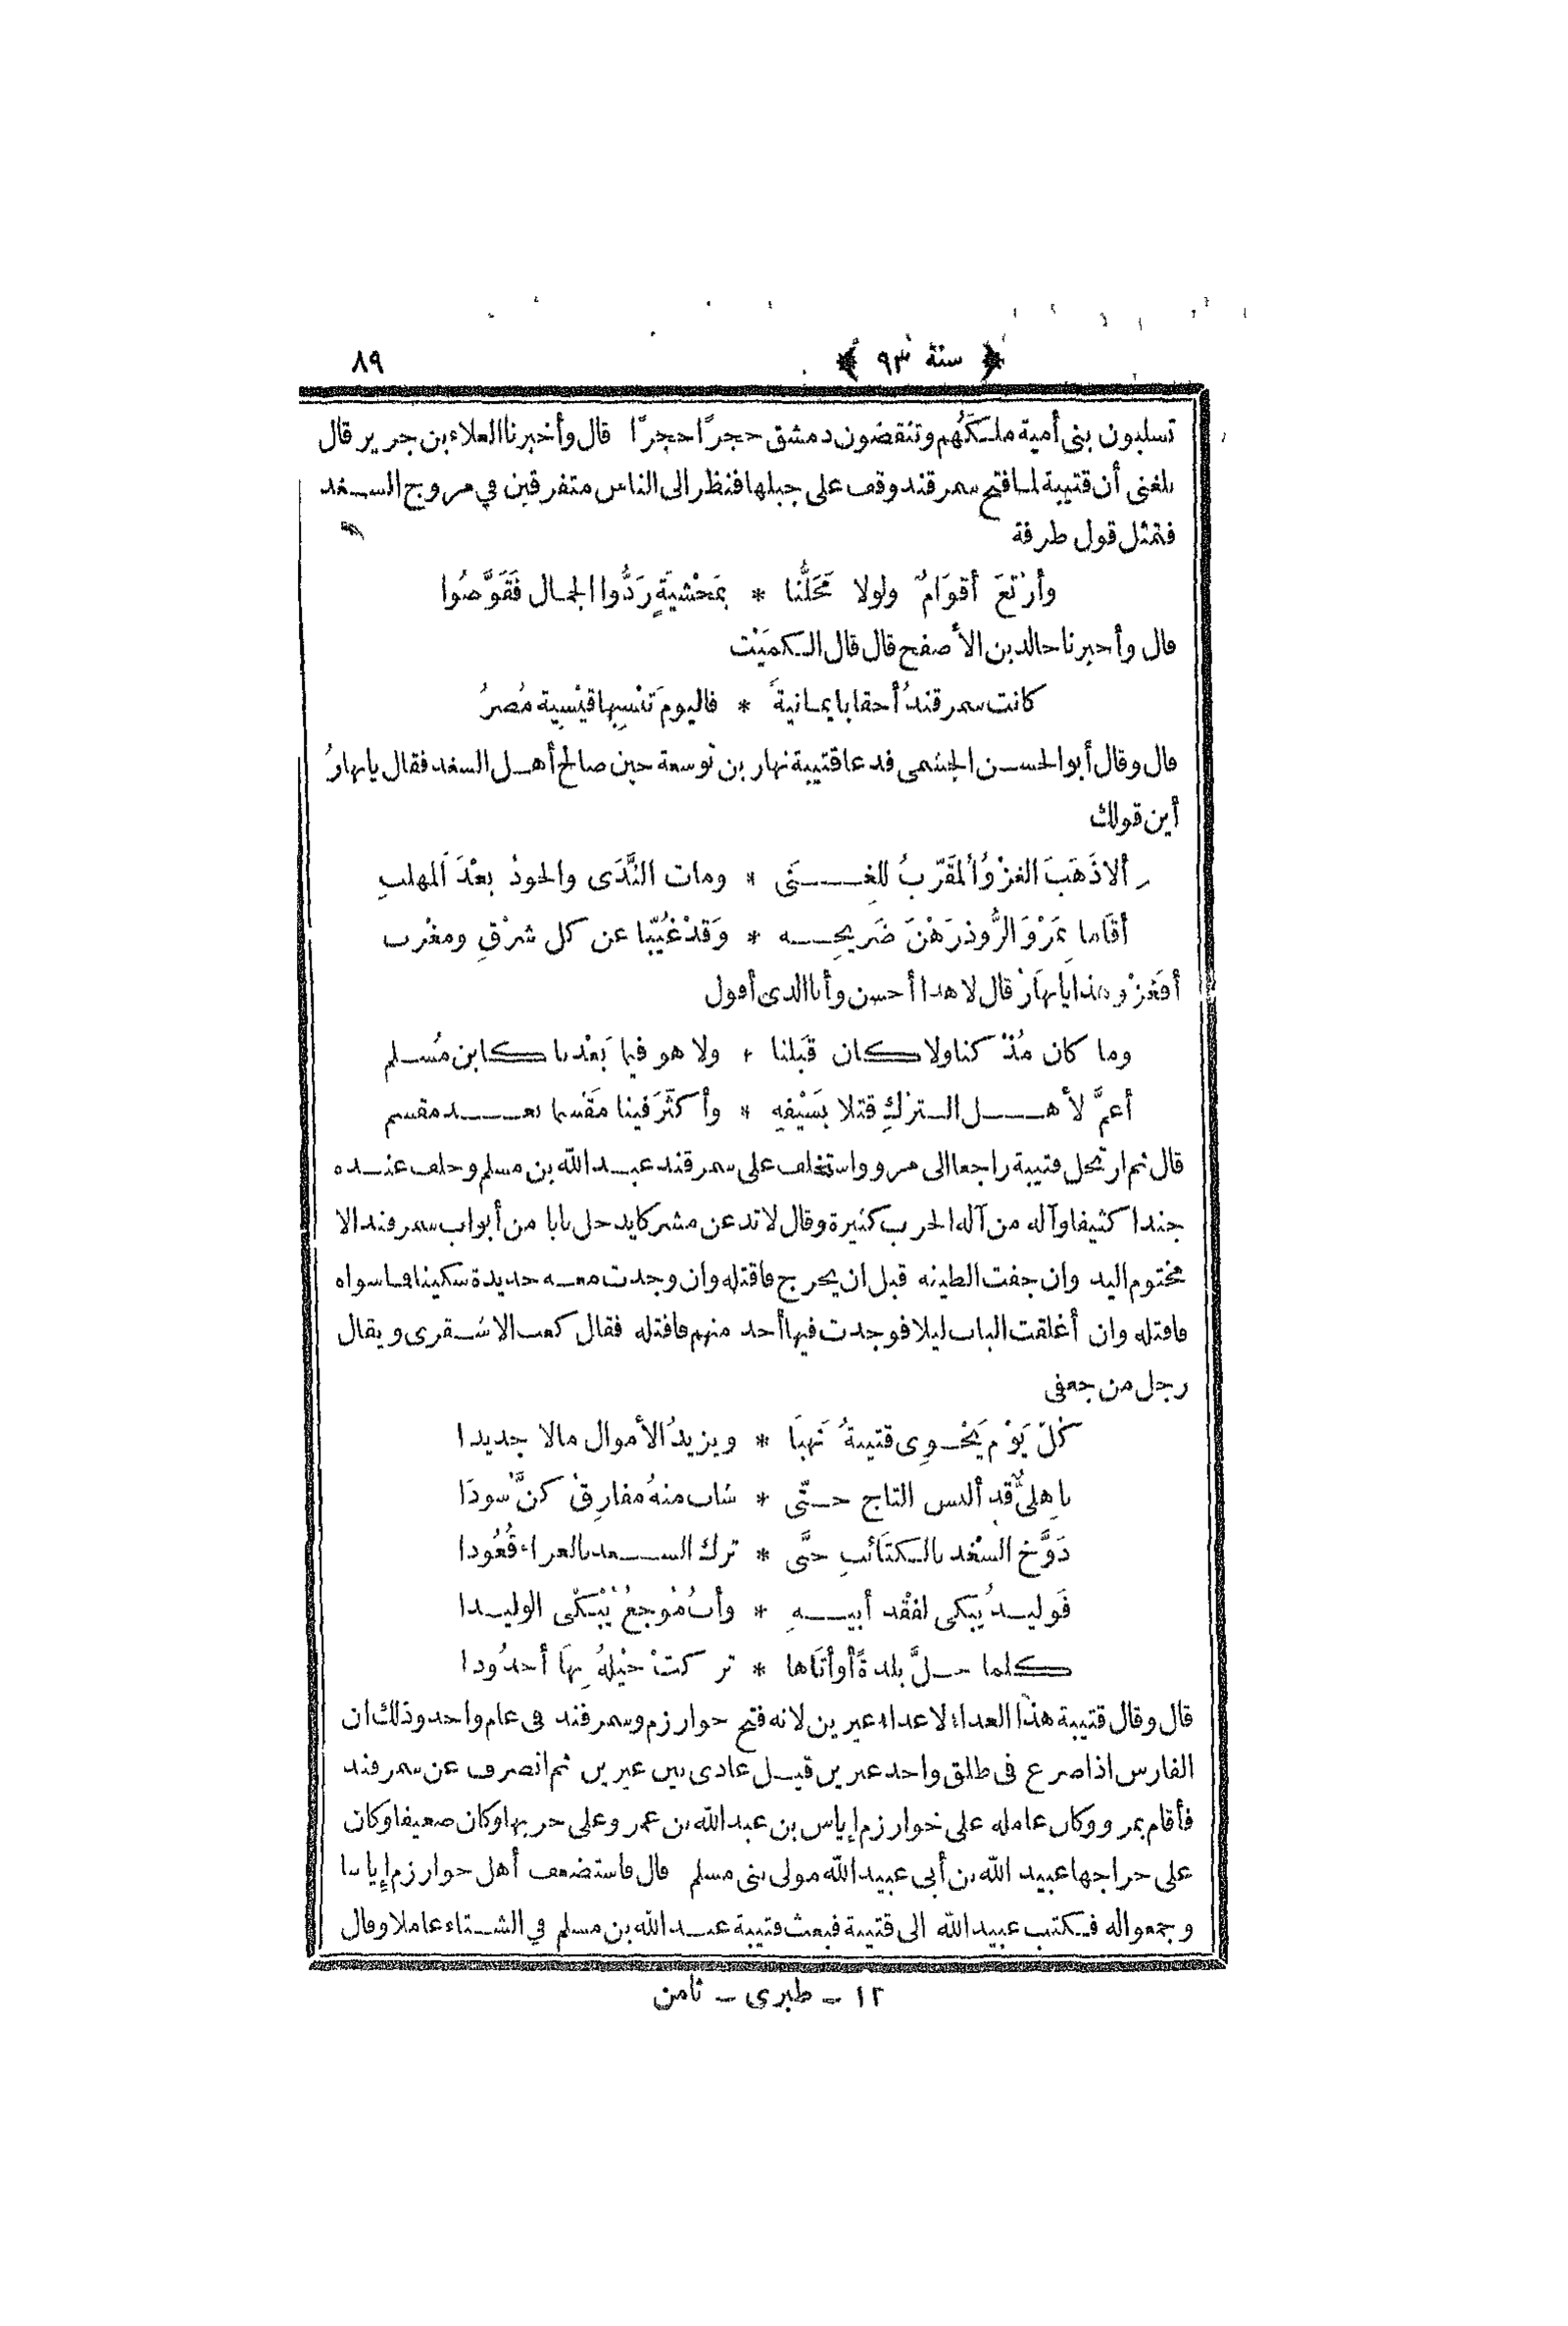 ﴿ سنة ٩٣ ﴾ ٨٩
تسلبون بنى أمية ملكَهُم وتنقضون دمشق حجرًا حجرًا قال وأخبرنا العلاء بن جرير قال
بلغنى أن قتيبة لما فتح سمرقند وقف على جبلها فنظر الى الناس متفرقين في مروج السغد
فتمثل قول طرفة
وأرْتَعَ أقوَامٌ ولولا مَحَلُّنا * بمَخْشيَةٍ رَدُّوا الجمال فَقَوَّضُوا
قال وأخبرنا خالد بن الأصفح قال قال الكمَيْت
كانت سمرقندُ أحقابا يمانيةً * فاليومَ تنْسِبها قيْسِية مُضرُ
قال وقال أبو الحسن الجشمى فدعا قتيبة نهار بن توسعة حين صالح أهل السغد فقال يا نهارُ
أين قولك
ألا ذَهَبَ الغزْوُ المقَرّبُ للغِنَى * ومات النَّدَى والجودُ بعْدَ المهلبِ
أقَاما بمَرْوَ الرُّوذ رَهْنَ ضَريحِه * وَقدْ غُيِّبا عن كل شرْقِ ومغْرب
أفَغزْو هذا يا نهارُ قال لا هذا أحسن وأنا الذى أقول
وما كان مُذْ كنا ولا كان قَبلنا * ولا هو فيما بَعْدنا كابن مُسلم
أعمَّ لأهل التركِ قتلا بسَيْفهِ * وأكثَرَ فينا مَقْسما بعد مقسم
قال ثم ارتحل قتيبة راجعا الى مرو واستخلف على سمرقند عبد الله بن مسلم وخلف عنده
جندا كثيفا وآله من آله الحرب كثيرة وقال لا تدعن مشركا يدخل بابا من أبواب سمرقند الا
مختوم اليد وان جفت الطينه قبل ان يخرج فاقتله وان وجدت معه حديدة سكينا فما سواه
فاقتله وان أغلقت الباب ليلا فوجدت فيها أحد منهم فاقتله فقال كعب الاشقرى ويقال
رجل من جعفى
كُلّ يَوْم يَحْوِى قتيبةُ نَهبَا * ويزيدُ الأموال مالا جديدا
باهِلىٌّ قد ألبس التاج حتّى * شاب منهُ مفارِقْ كنَّ سُودَا
دَوَّخ السُّغد بالكتَائبِ حتَّى * ترك السغد بالعراء قُعُودا
فَوليدُ يبكى لفقْد أبيهِ * وأبُ مُوجعُ يُبْكّى الوليدا
كلما حلَّ بلدةً أو أتَاها * تركتْ خيْلهُ بِهَا أخدُودا
قال وقال قتيبة هذا العداء لا عداء عيرين لانه فتح خوارزم وسمرقند في عام واحد وذلك ان
الفارس اذا صرع فى طلق واحد عيرين قيل عادى بين عيرين ثم انصرف عن سمرقند
فأقام بمرو وكان عامله على خوارزم إياس بن عبد الله بن عمرو على حربها وكان ضعيفا وكان
على خراجها عبيد الله بن أبى عبيد الله مولى بنى مسلم قال فاستضعف أهل خوارزم إياسا
وجمعوا له فكتب عبيد الله الى قتيبة فبعث قتيبة عبد الله بن مسلم في الشتاء عاملا وقال
١٢ - طبرى - ثامن